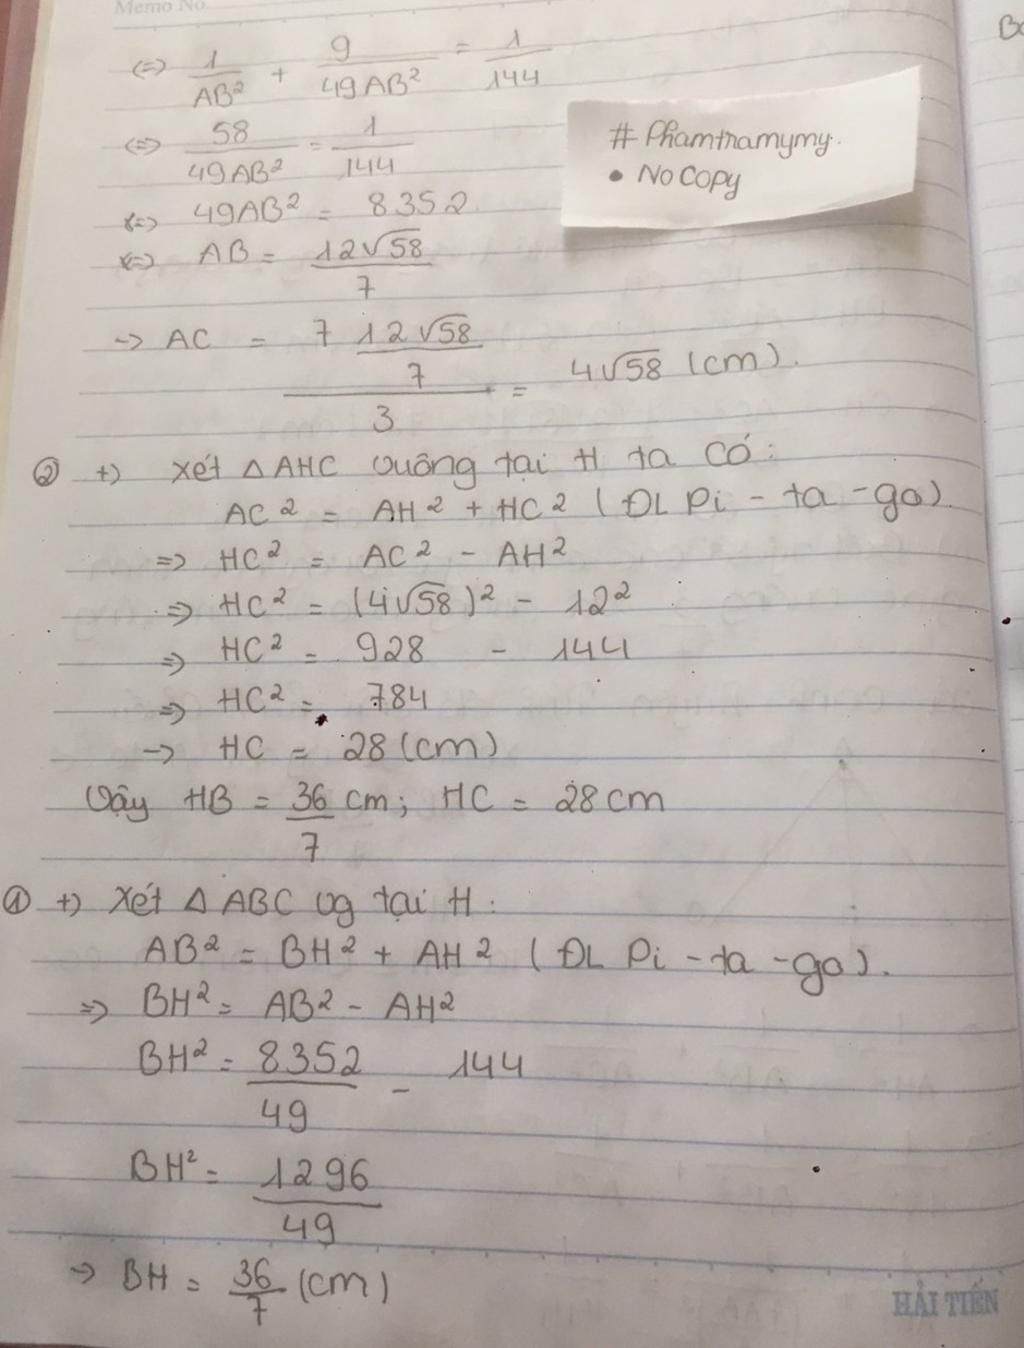 Memo No.
<=> 1/AB² + 9/49AB² = 1/144
<=> 58/49AB² = 1/144
<=> 49AB² = 8352
<=> AB = 12√58/7
# Phamtramymy.
• No Copy
-> AC = 7 12√58/7/3 = 4√58 (cm).
② +) Xét △AHC vuông tại H ta có:
AC² = AH² + HC² (ĐL Pi - ta - go)
=> HC² = AC² - AH²
=> HC² = (4√58)² - 12²
=> HC² = 928 - 144
=> HC² = 784
-> HC = 28 (cm)
Vậy HB = 36/7 cm; HC = 28 cm
① +) Xét △ABC vg tại H:
AB² = BH² + AH² (ĐL Pi - ta - go).
=> BH² = AB² - AH²
BH² = 8352/49 - 144
BH² = 1296/49
-> BH = 36/7 (cm)
HẢI TIẾN